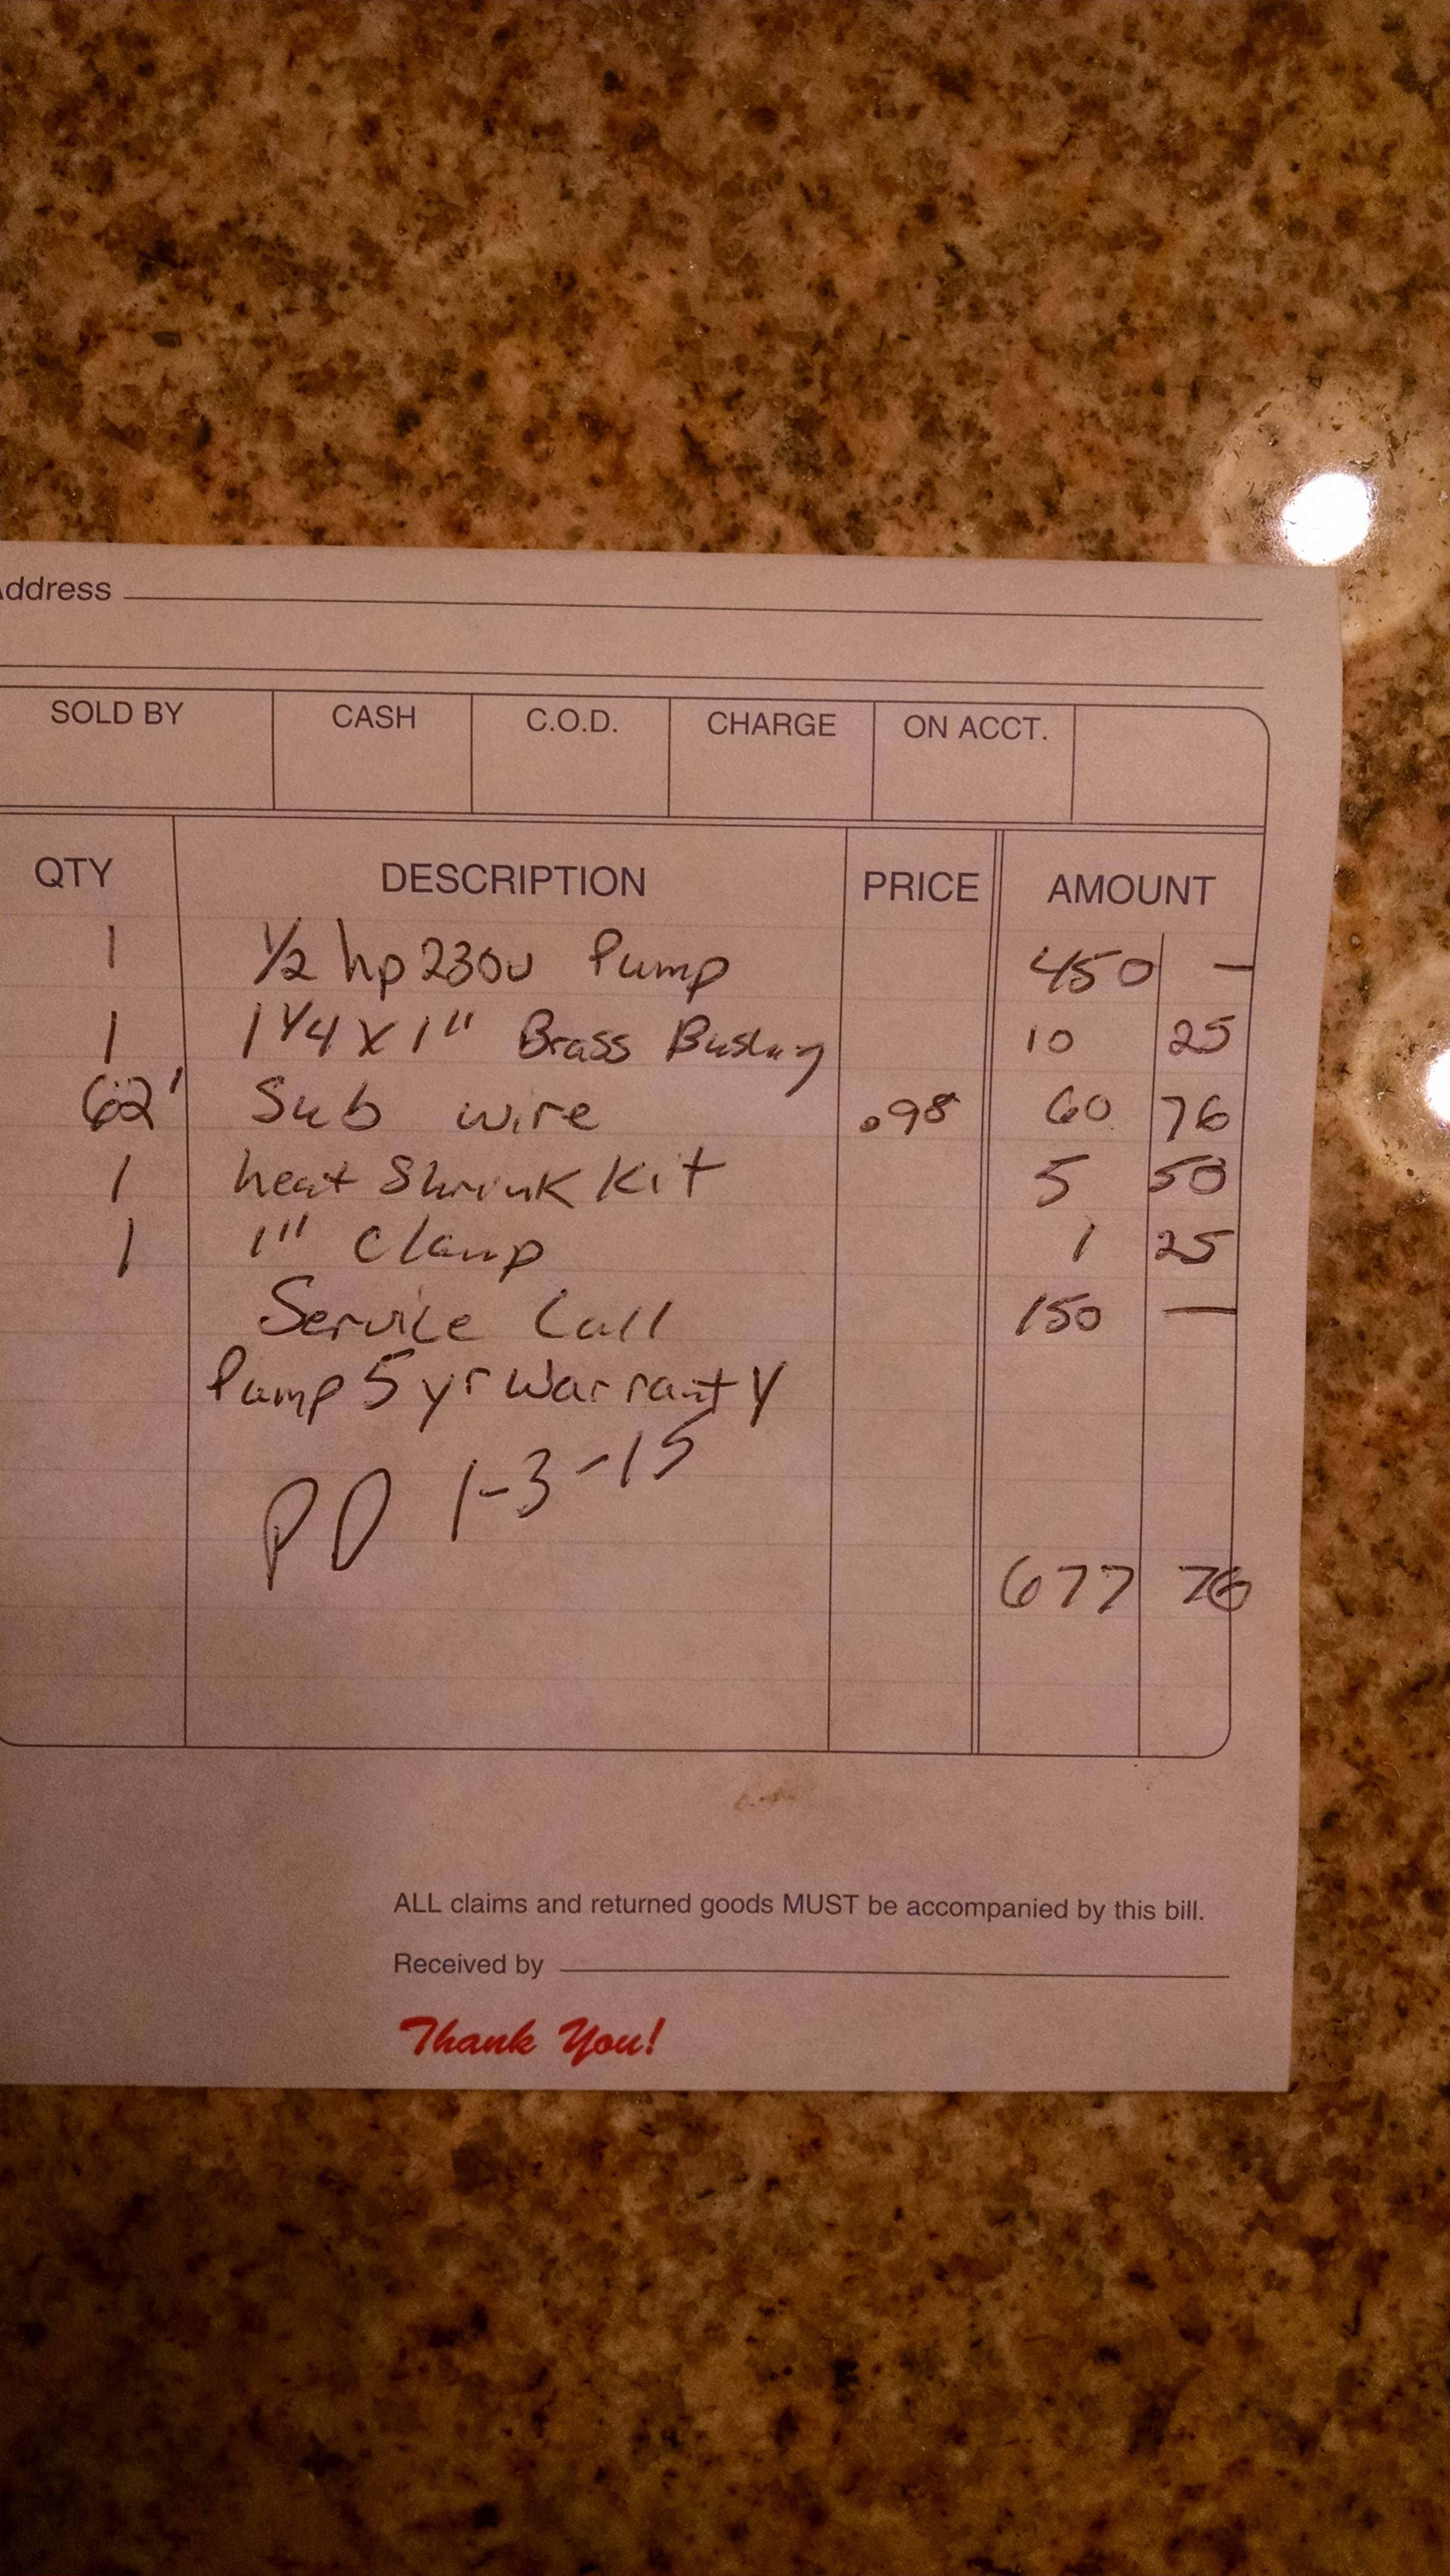 Address
SOLD BY CASH C.O.D. CHARGE ON ACCT.
QTY DESCRIPTION PRICE AMOUNT
1 1/2 hp 230v Pump 450 —
1 1 1/4 X 1" Brass Bushing 10 25
62' Sub wire .98 60 76
1 heat Shrink Kit 5 50
1 1" Clamp 1 25
Service Call 150 —
Pump 5 yr Warranty
PD 1-3-15
677 76
ALL claims and returned goods MUST be accompanied by this bill.
Received by
Thank You!